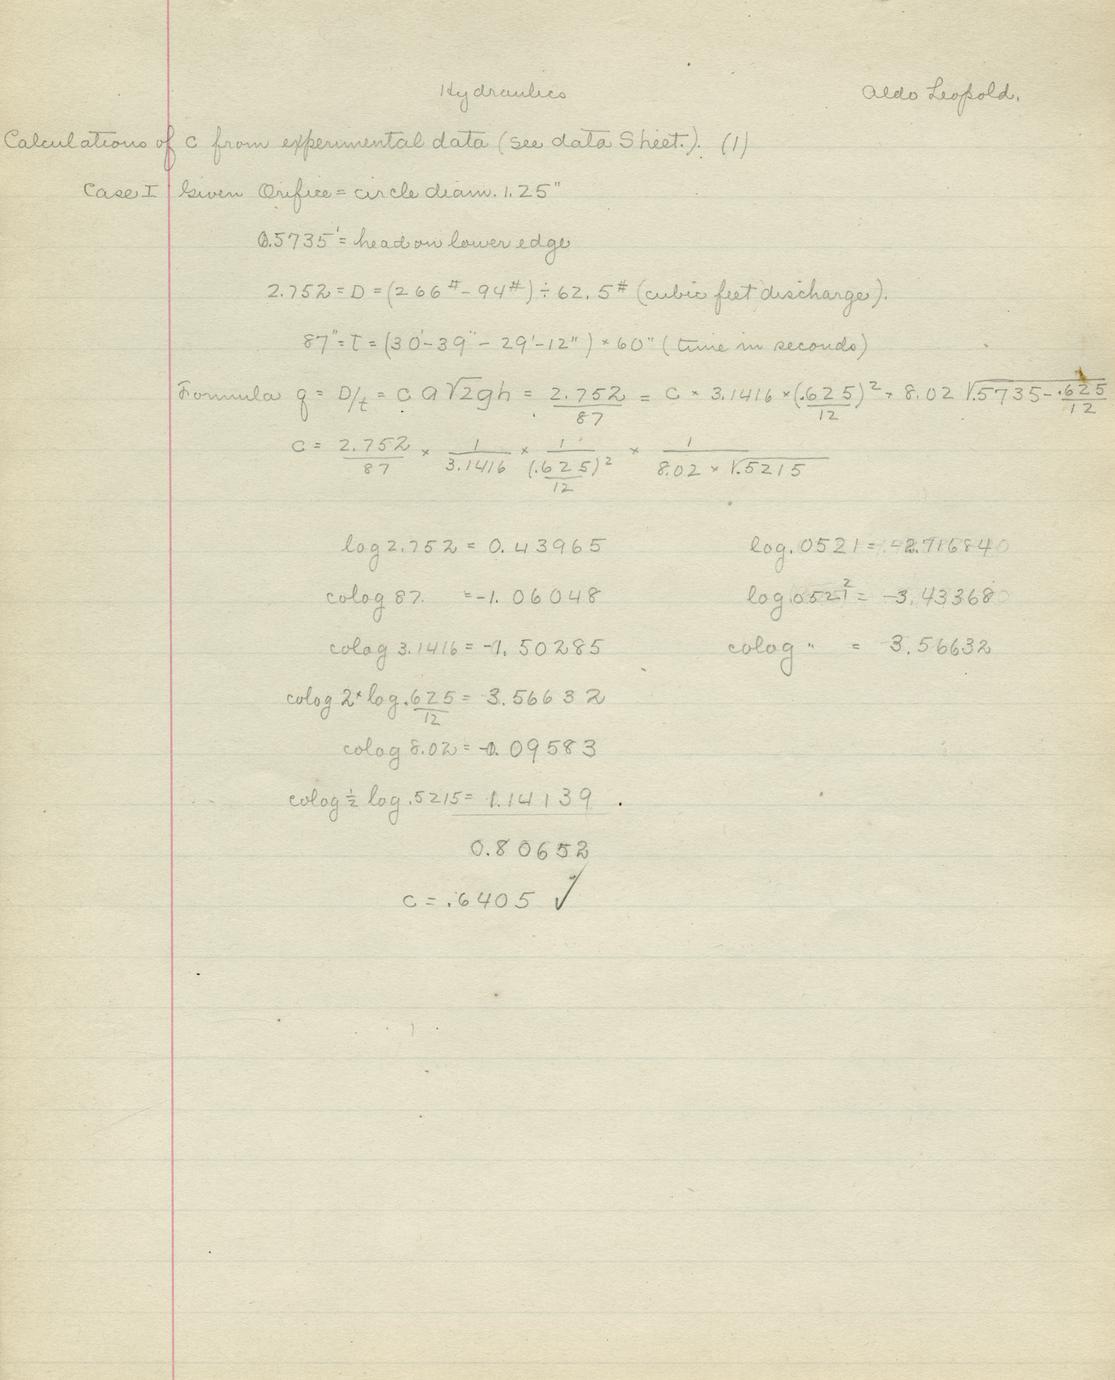 Hydraulics
Aldo Leopold.
Calculations of c from experimental data (see data Sheet.). (1)
Case I Given Orifice = circle diam. 1.25"
0.5735' = head on lower edge
2.752 = D = (266# - 94#) ÷ 62.5# (cubic feet discharge).
87" = T = (30'-39" - 29'-12") × 60" (time in seconds)
Formula q = D/t = c a √2gh = 2.752/87 = c × 3.1416 × (.625/12)² × 8.02 √.5735 - .625/12
c = 2.752/87 × 1/3.1416 × 1/(.625/12)² × 1/8.02 × √.5215
log 2.752 = 0.43965
log .0521 = -2.716840
colog 87. = -1.06048
log .0521² = -3.433680
colog 3.1416 = -1.50285
colog " = 3.56632
colog 2 × log .625/12 = 3.56632
colog 8.02 = -0.09583
colog ½ log .5215 = 1.14139
0.80652
c = .6405 ✓